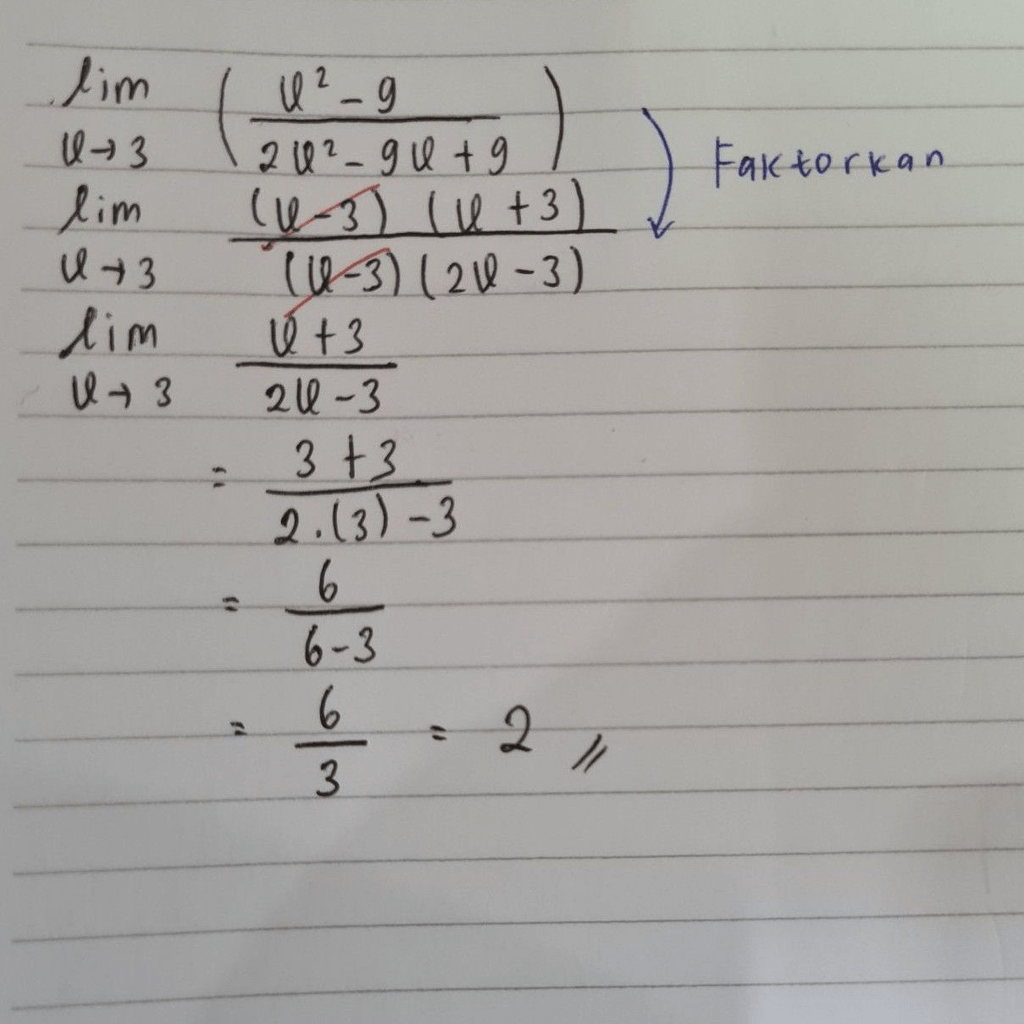 lim ( u² - 9
u → 3 2u² - 9u + 9 ) Faktorkan
lim (u - 3) (u + 3)
u → 3 (u - 3) (2u - 3)
lim u + 3
u → 3 2u - 3
= 3 + 3
2 . (3) - 3
= 6
6 - 3
= 6 = 2 //
3